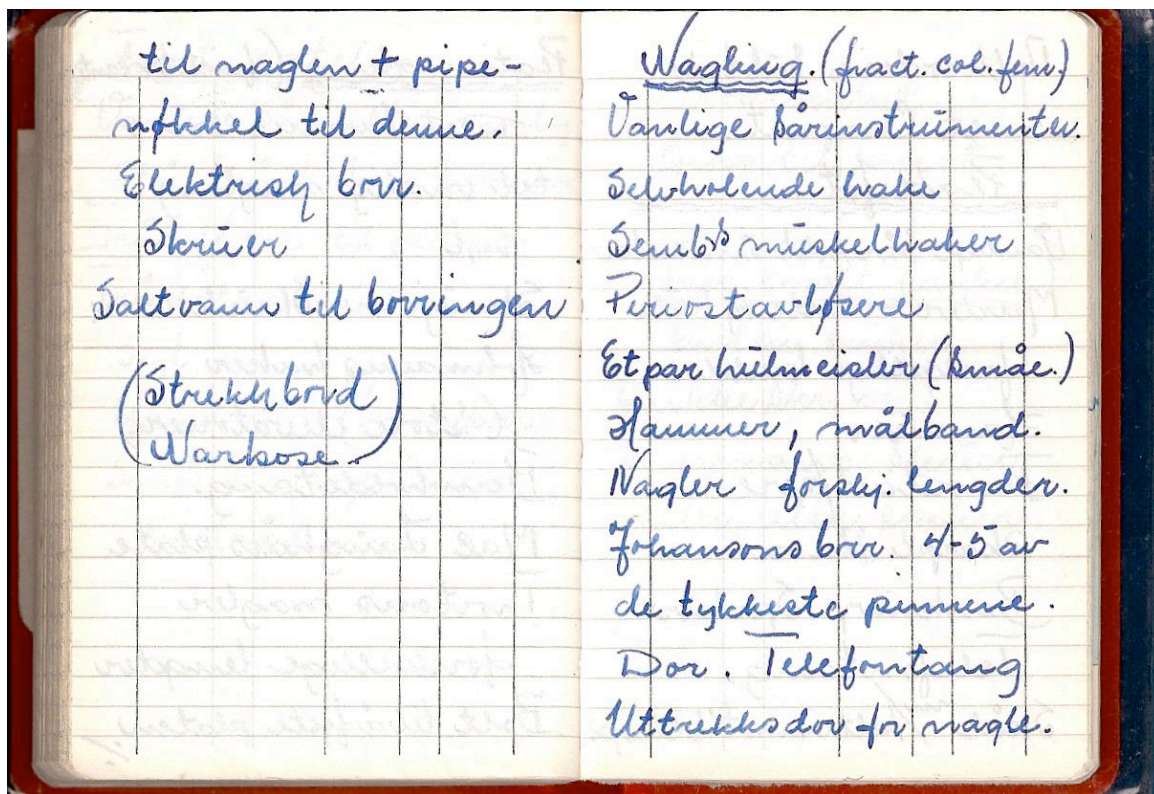 til naglen + pipe-
nøkkel til denne.
Elektrisk borr.
Skruer
Saltvann til borringen
(Strekkbord
Narkose.)
Nagling. (fract. col. fem.)
Vanlige sårinstrumenter.
Selvholende hake
Sembs muskelhaker
Periostavløsere
Et par hulmeisler (småe.)
Hammer, målband.
Nagler forskj. lengder.
Johansons borr. 4-5 av
de tykkeste pinnene.
Dor. Telefontang
Uttrekksdor for nagle.